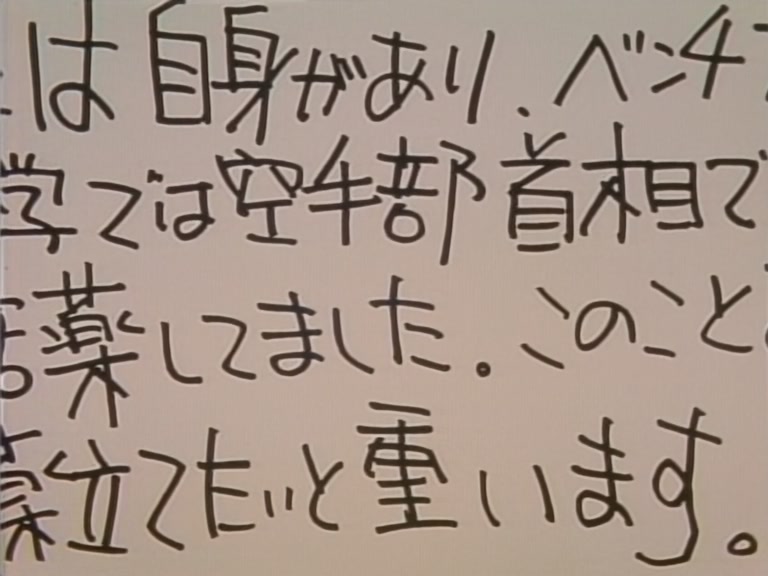 は自身があり、ベンチ
学では空手部首相で
薬してました。このこと
立てたいと重います。